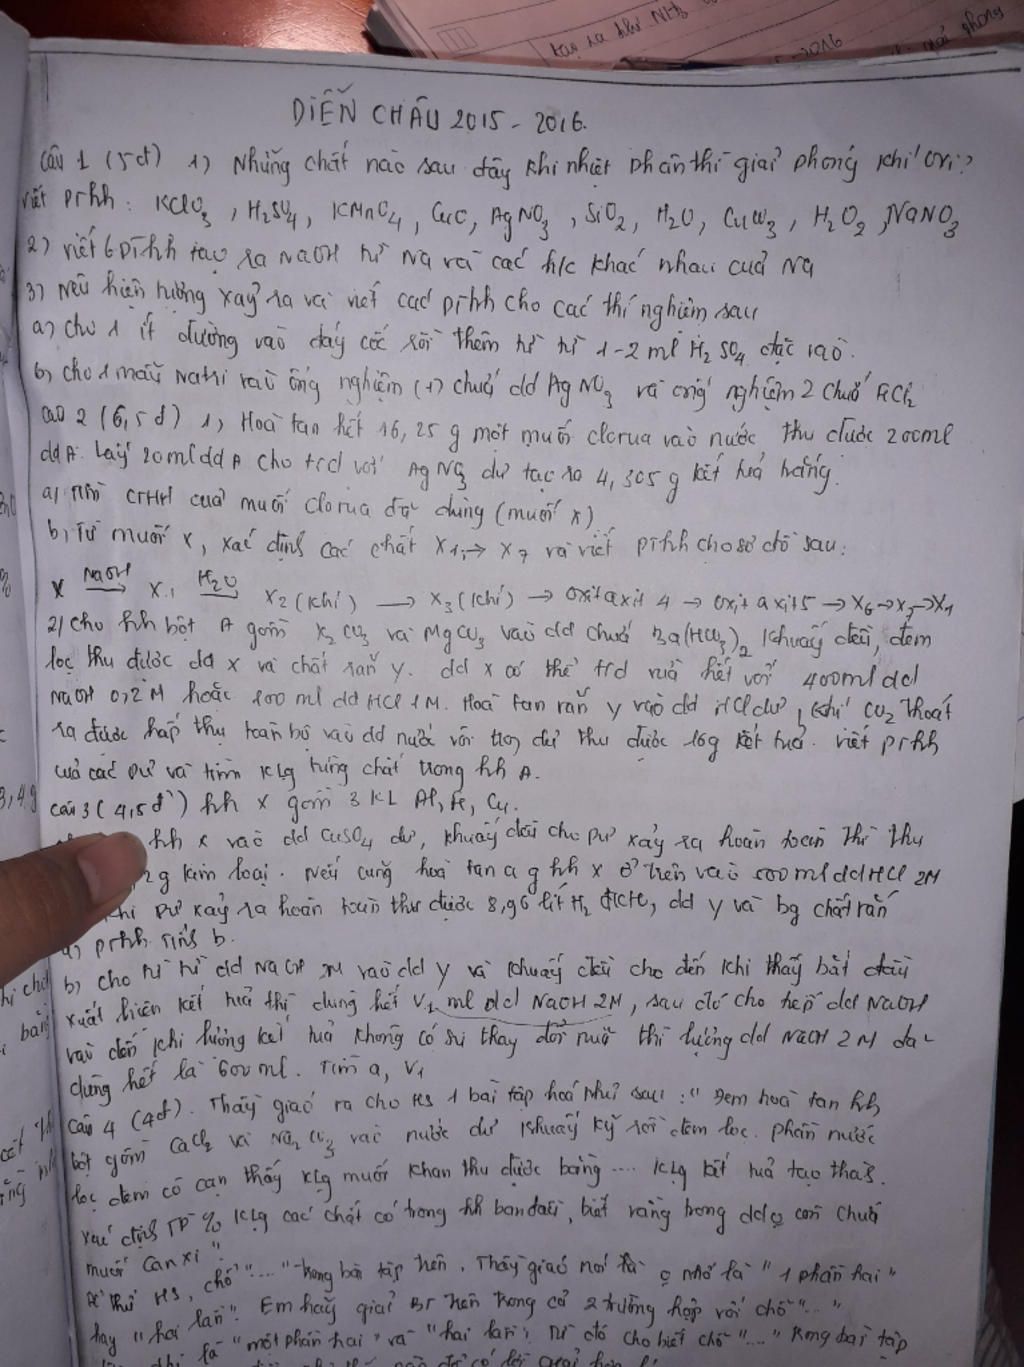 tạo ra khí NH3
-2016
giải phóng
DIỄN CHÂU 2015 - 2016.
Câu 1 (5đ) 1) Những chất nào sau đây khi nhiệt phân thì giải phóng khí oxi?
viết pthh : KClO3 , H2SO4 , KMnO4 , CuO, AgNO3 , SiO2 , H2O , CuCO3 , H2O2 , NaNO3
2) viết 6 pthh tạo ra NaOH từ Na và các h/c khác nhau của Na
3) Nêu hiện tượng xảy ra và viết các pthh cho các thí nghiệm sau
a) cho 1 ít đường vào đáy cốc rồi thêm từ từ 1-2 ml H2SO4 đặc vào.
b) cho 1 mẫu Natri vào ống nghiệm (1) chứa dd AgNO3 và ống nghiệm 2 chứa FeCl2
câu 2 (6,5đ) 1) Hoà tan hết 16,25 g một muối clorua vào nước thu được 200ml
dd A. Lấy 20ml dd A cho t/d với AgNO3 dư tạo ra 4,305 g kết tủa trắng.
a) Tìm CTHH của muối clorua đã dùng (muối X)
b) Từ muối X, xác định các chất X1 → X7 và viết pthh cho sơ đồ sau:
X NaOH → X1 H2O → X2 (khí) → X3 (khí) → oxit axit 4 → oxit axit 5 → X6 → X7 → X1
2) cho hh bột A gồm K2CO3 và MgCO3 vào dd chứa Ba(HCO3)2 khuấy đều, đem
lọc thu được dd X và chất rắn Y. dd X có thể t/d vừa hết với 400ml dd
NaOH 0,2M hoặc 100 ml dd HCl 1M. Hoà tan rắn Y vào dd HCl dư, khí CO2 thoát
ra được hấp thụ toàn bộ vào dd nước vôi trong dư thu được 16g kết tủa. viết pthh
của các pư và tìm klg từng chất trong hh A.
3,4g
câu 3 (4,5đ) hh X gồm 3 KL Al, Fe, Cu.
hh X vào dd CuSO4 dư, khuấy đều cho pư xảy ra hoàn toàn thì thu
2g kim loại. Nếu cũng hoà tan a g hh X ở trên vào 500ml dd HCl 2M
khi pư xảy ra hoàn toàn thu được 8,96 lít H2 đktc, dd Y và bg chất rắn
a) pthh tính b.
b) cho từ từ dd NaOH 2M vào dd Y và khuấy đều cho đến khi thấy bắt đầu
xuất hiện kết tủa thì dùng hết V1 ml dd NaOH 2M, sau đó cho tiếp dd NaOH
vào đến khi lượng kết tủa không có sự thay đổi nữa thì lượng dd NaOH 2M đã
dùng hết là 600ml. Tìm a, V1
Câu 4 (4đ). Thầy giáo ra cho HS 1 bài tập hoá như sau: " Đem hoà tan hh
bột gồm CaCl2 và Na2CO3 vào nước dư khuấy kỹ rồi đem lọc. phần nước
lọc đem cô cạn thấy klg muối khan thu được bằng .... klg kết tủa tạo thành.
xác định TP % klg các chất có trong hh ban đầu, biết rằng trong dd còn chứa
muối canxi".
để thử HS, chỗ "...." trong bài tập trên, Thầy giáo nói là nhớ là "1 phần hai"
hay "hai lần". Em hãy giải BT trên trong cả 2 trường hợp với chỗ "...."
là "một phần hai" và "hai lần". Từ đó cho biết chỗ "...." trong bài tập